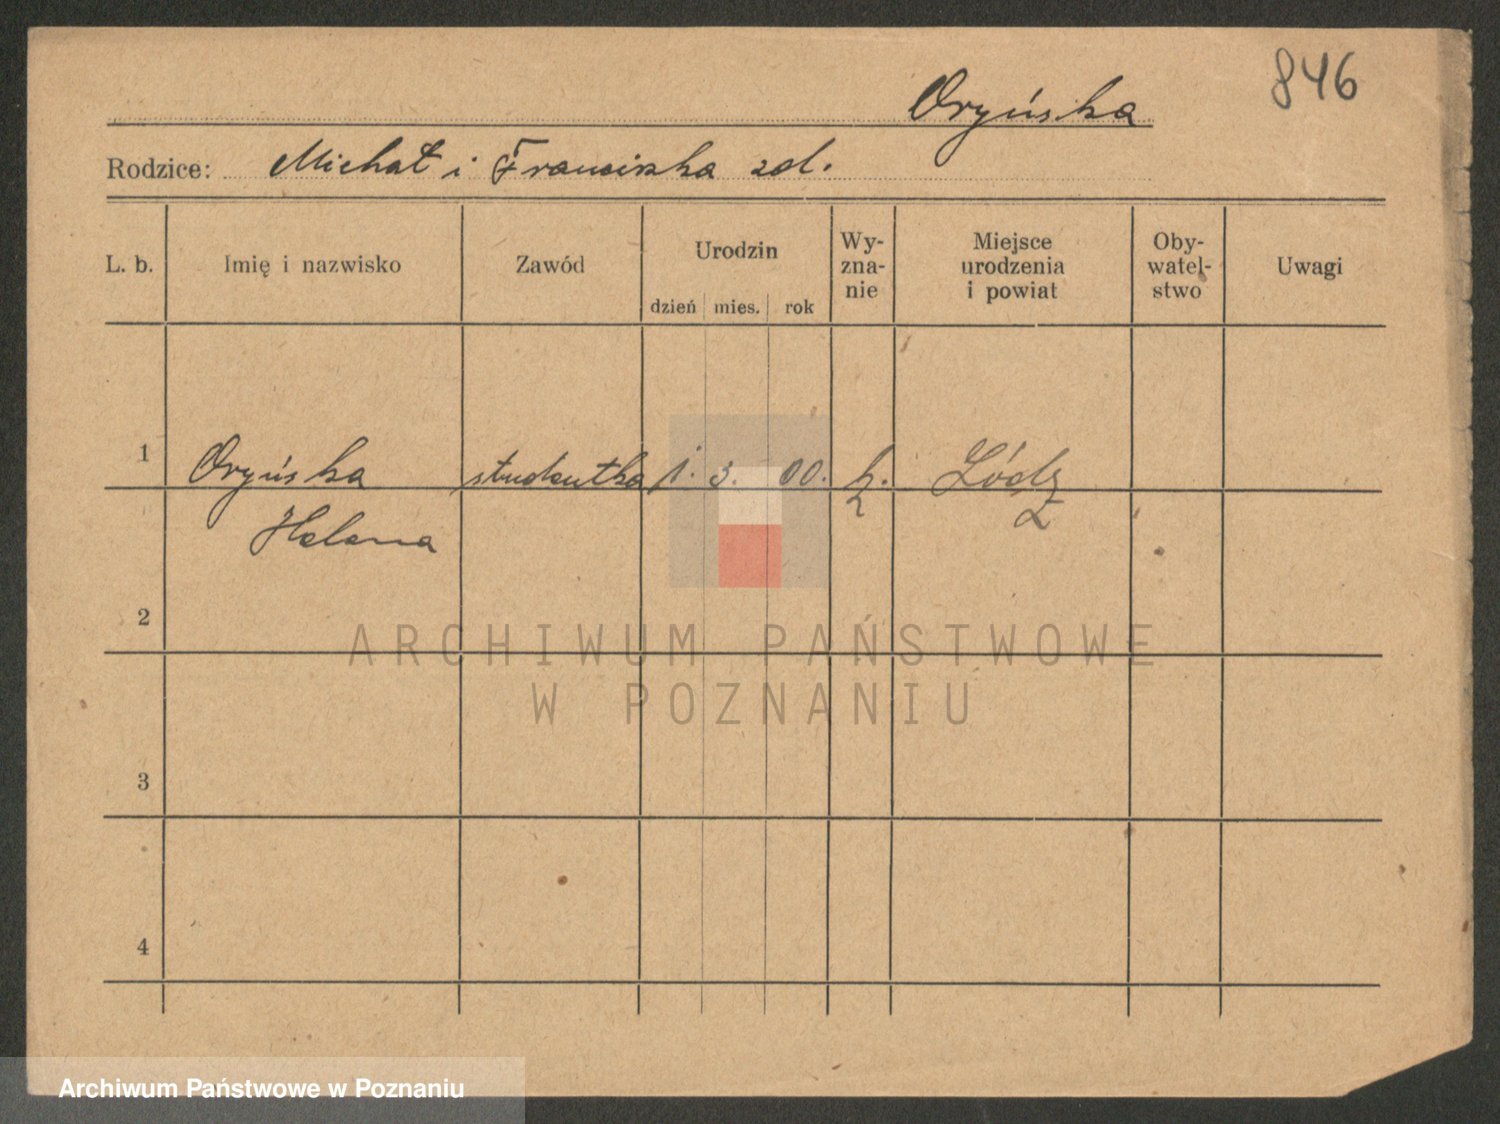 846
Oryńska
Rodzice: Michał i Franciszka zd.
L. b. Imię i nazwisko Zawód Urodzin dzień mies. rok Wy-zna-nie Miejsce urodzenia i powiat Oby-watel-stwo Uwagi
1 Oryńska studentka 1. 3. 00. k. Łódź
Helena
2
ARCHIWUM PAŃSTWOWE
W POZNANIU
3
4
Archiwum Państwowe w Poznaniu